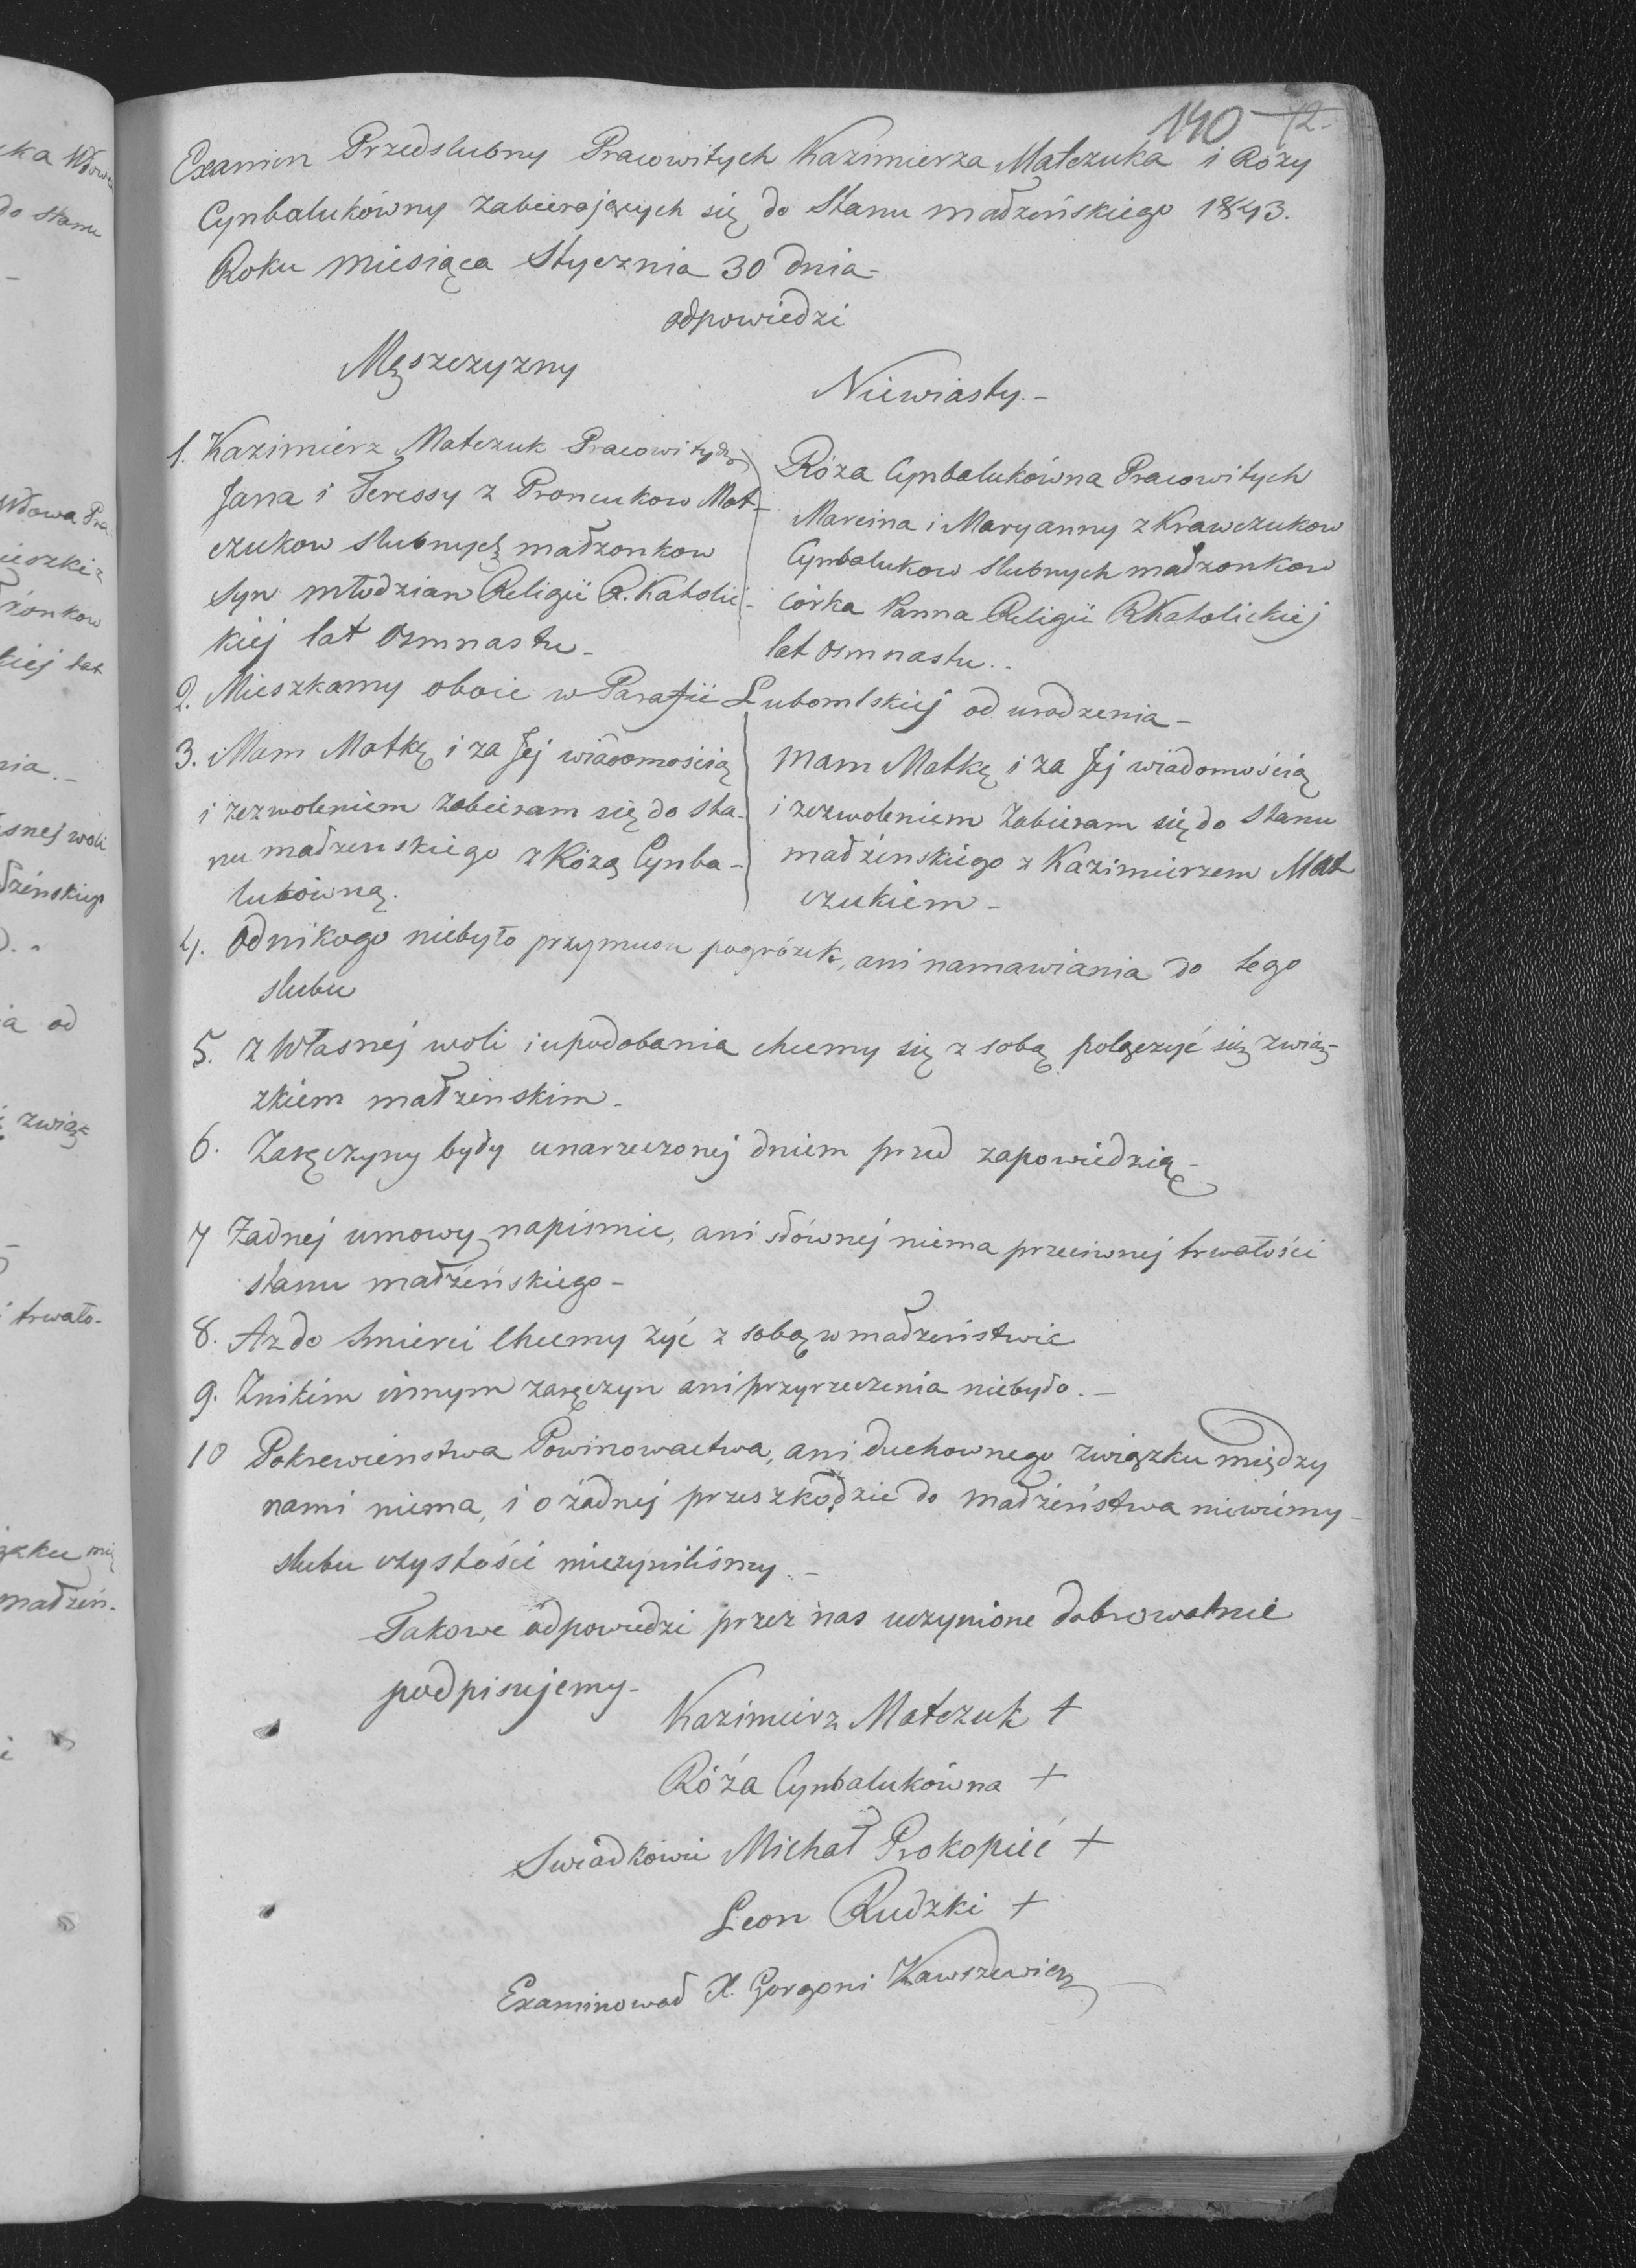 140 72
Examin Przedslubny Pracowitych Kazimierza Matczuka i Róży
Cynbalukówny zabierających się do Stanu małżeńskiego 1843.
Roku miesiąca Stycznia 30 dnia -
odpowiedzi
Męszczyzny
Niewiasty. -
1. Kazimierz Matczuk Pracowitych
Jana i Teressy z Proncukow Mat-
czukow slubnych małzonkow
syn młodzian Religii R. Katolic-
kiej lat osmnastu -
Róża Cynbalukówna Pracowitych
Marcina i Maryanny z Krawczukow
Cynbalukow slubnych małzonkow
córka Panna Religii RKatolickiej
lat osmnastu ..
2. Mieszkamy oboie w Parafii Lubomlskiej od urodzenia -
3. Mam Matkę i za Jej wiadomością
i zezwoleniem zabieram się do sta-
nu małzenskiego z Różą Cynba-
lukówną.
mam Matkę i za Jej wiadomością
i zezwoleniem zabieram się do stanu
małżenskiego z Kazimierzem Mat
czukiem -
4. od nikogo niebyło przymusu pogróżek, ani namawiania do tego
slubu
5. z Własnej woli i upodobania chcemy się z sobą połączyć się zwią-
zkiem małżenskim -
6. Zaręczyny były unarzeczonej dniem przed zapowiedzią -
7 Żadnej umowy napismie, ani słównej niema przeciwnej trwałości
stanu małżeńskiego -
8. Az do smierci chcemy zyć z sobą w małżeństwie
9. Znikim innym zaręczyn ani przyrzeczenia niebyło. -
10 Pokrewieństwa Powinowactwa, ani duchownego związku między
nami niema, i o żadnej przeszkodzie do małżeństwa niewiemy -
slubu czystości nieczyniliśmy. -
Takowe odpowiedzi przez nas uczynione dobrowolnie
podpisujemy -
Kazimierz Matczuk +
Róża Cynbalukówna +
Swiadkowie Michał Prokopić +
Leon Rudzki +
Examinował X. Gorgoni